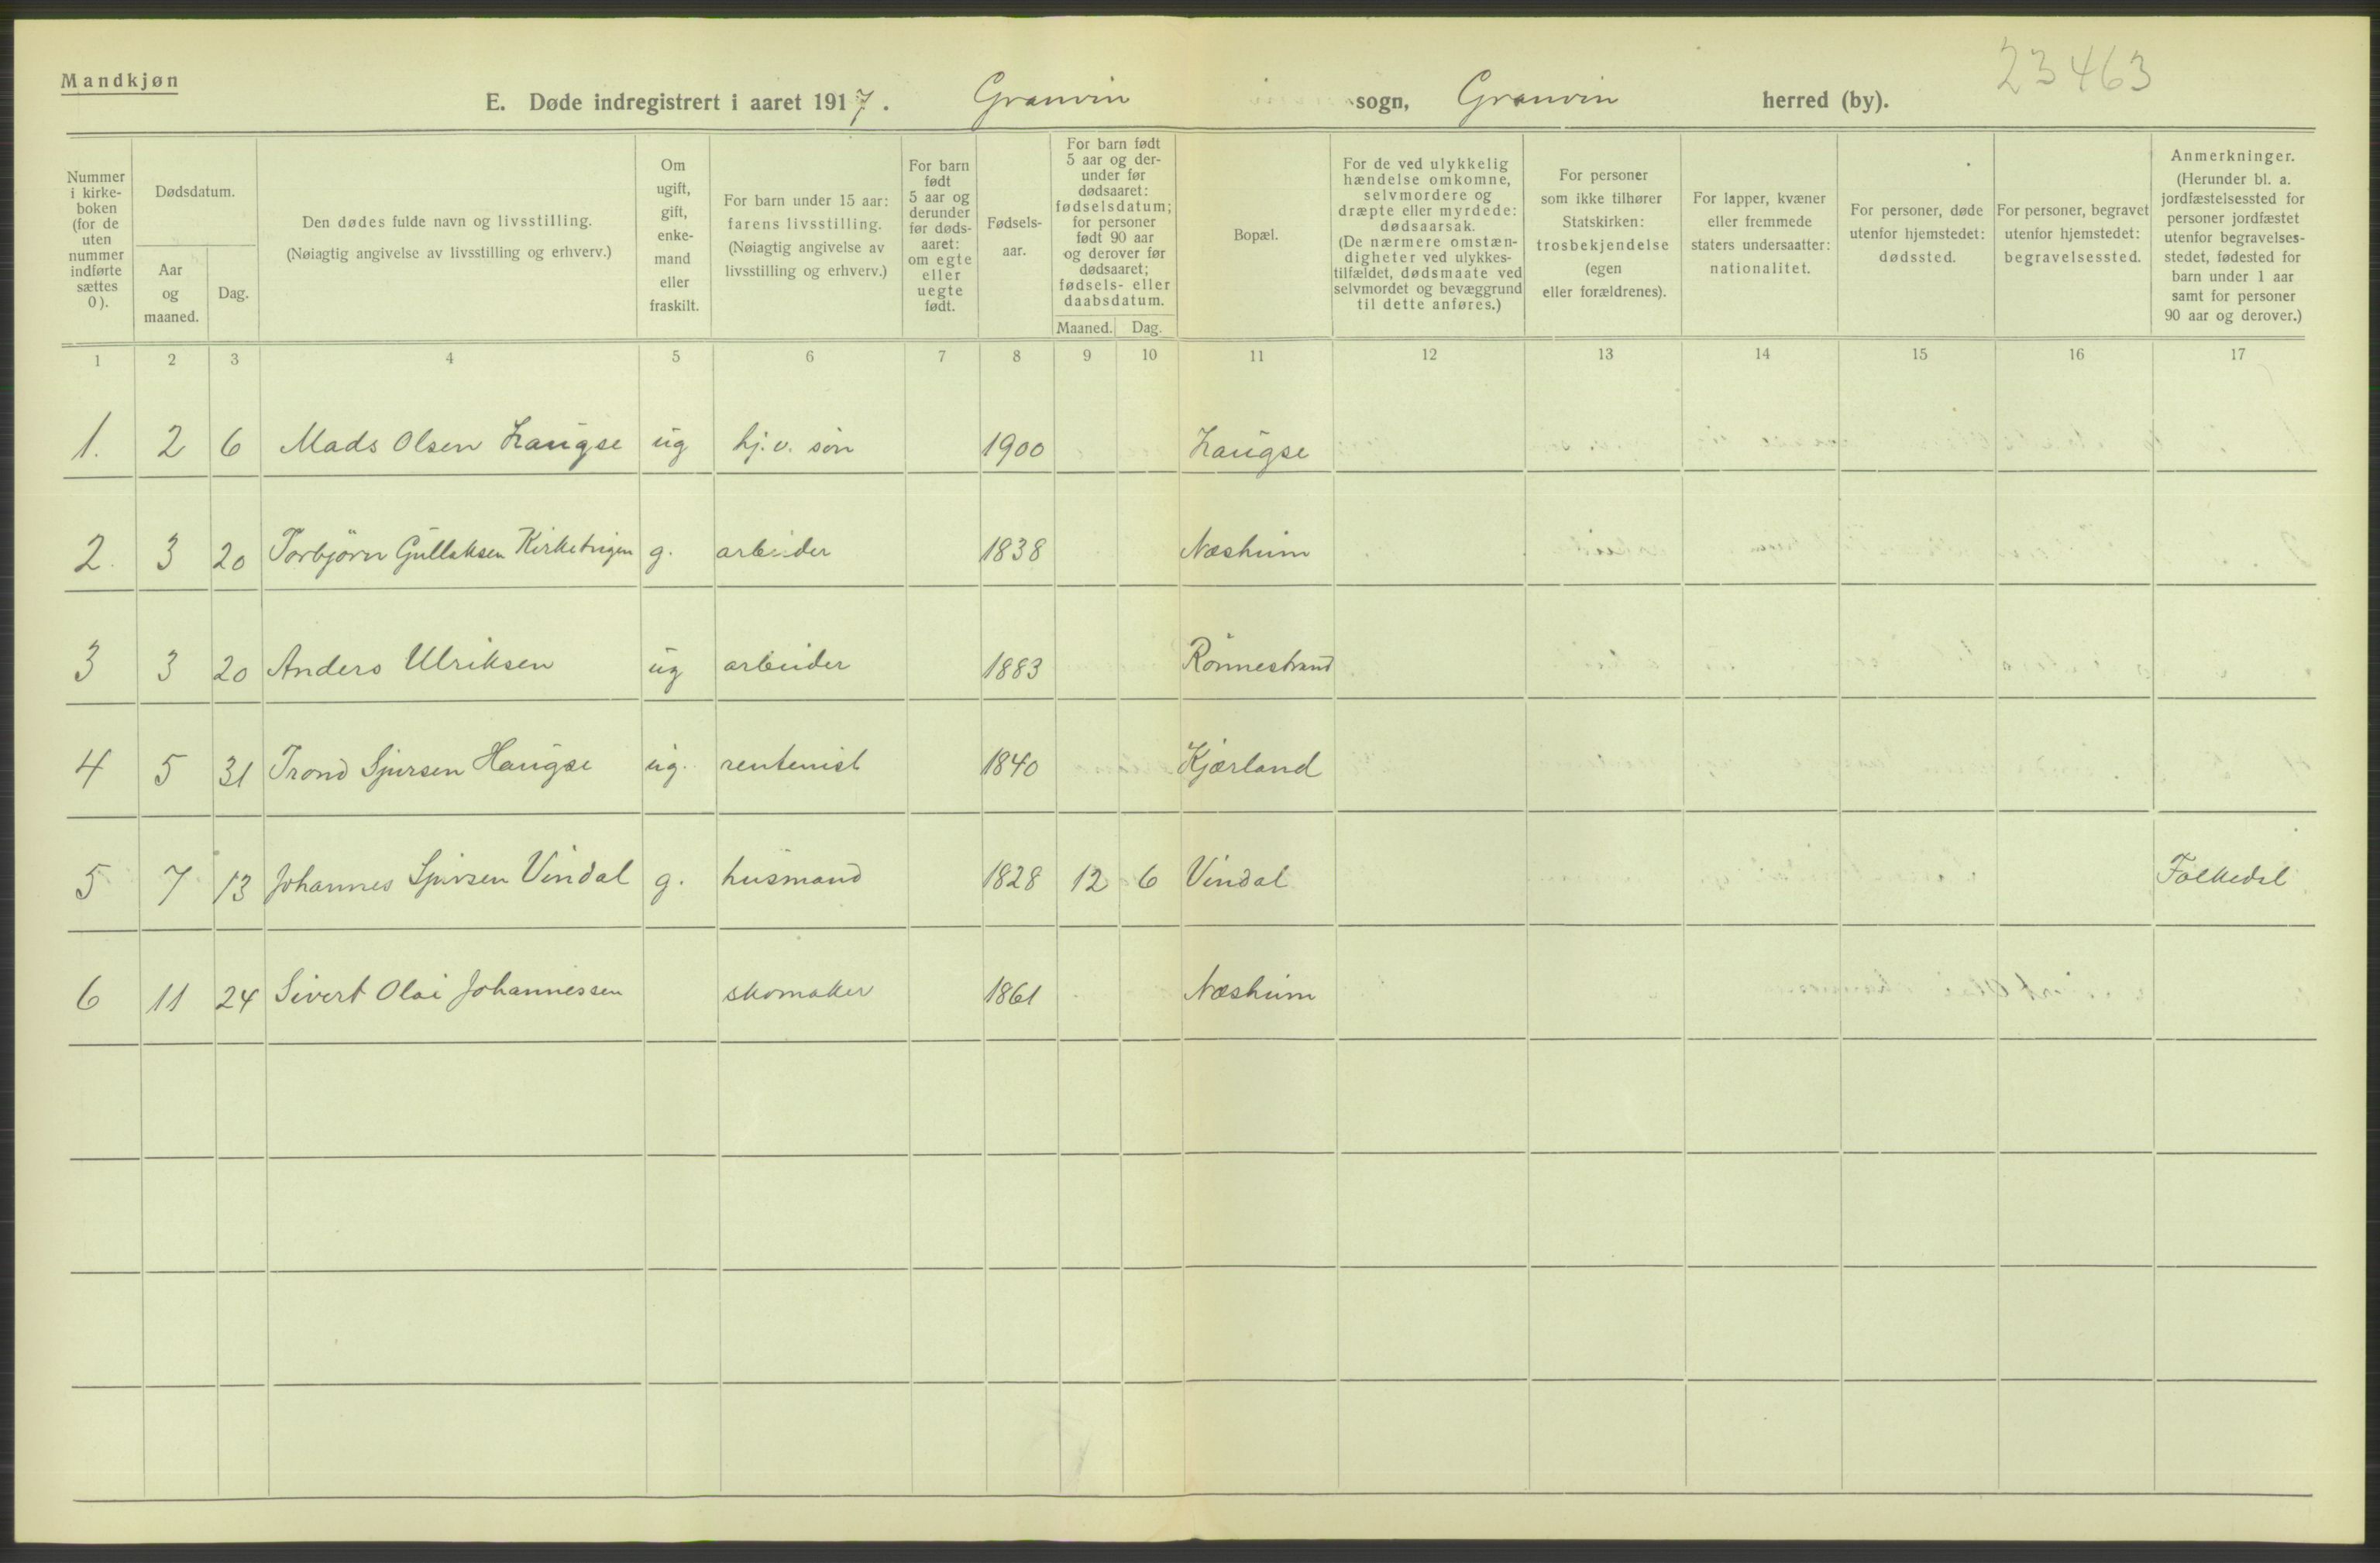 23463
Mandkjøn
E. Døde indregistrert i aaret 1917. Granvin sogn, Granvin herred (by).
Nummer i kirke-boken (for de uten nummer indførte sættes 0).
Dødsdatum.
Aar og maaned.
Dag.
Den dødes fulde navn og livsstilling.
(Nøiagtig angivelse av livsstilling og erhverv.)
Om ugift, gift, enke-mand eller fraskilt.
For barn under 15 aar: farens livsstilling.
(Nøiagtig angivelse av livsstilling og erhverv.)
For barn født 5 aar og derunder før døds-aaret: om egte eller uegte født.
Fødsels-aar.
For barn født 5 aar og der-under før dødsaaret: fødselsdatum; for personer født 90 aar og derover før dødsaaret; fødsels- eller daabsdatum.
Maaned. Dag.
Bopæl.
For de ved ulykkelig hændelse omkomne, selvmordere og dræpte eller myrdede: dødsaarsak.
(De nærmere omstæn-digheter ved ulykkes-tilfældet, dødsmaate ved selvmordet og bevæggrund til dette anføres.)
For personer som ikke tilhører Statskirken: trosbekjendelse (egen eller forældrenes).
For lapper, kvæner eller fremmede staters undersaatter: nationalitet.
For personer, døde utenfor hjemstedet: dødssted.
For personer, begravet utenfor hjemstedet: begravelsessted.
Anmerkninger.
(Herunder bl. a. jordfæstelsessted for personer jordfæstet utenfor begravelses-stedet, fødested for barn under 1 aar samt for personer 90 aar og derover.)
1 2 3 4 5 6 7 8 9 10 11 12 13 14 15 16 17
1. 2 6 Mads Olsen Haugse ug hj. v. søn 1900 Haugse
2. 3 20 Torbjörn Gullaksen g. arbeider 1838 Næsheim
3 3 20 Anders Ulriksen ug arbeider 1883 Rönnestrand
4 5 31 Trond Sjursen Haugse ug. rentenist 1840 Kjærland
5 7 13 Johannes Sjursen Vindal g. husmand 1828 12 6 Vindal Folkedal
6 11 24 Sivert Olai Johannessen skomaker 1861 Næsheim